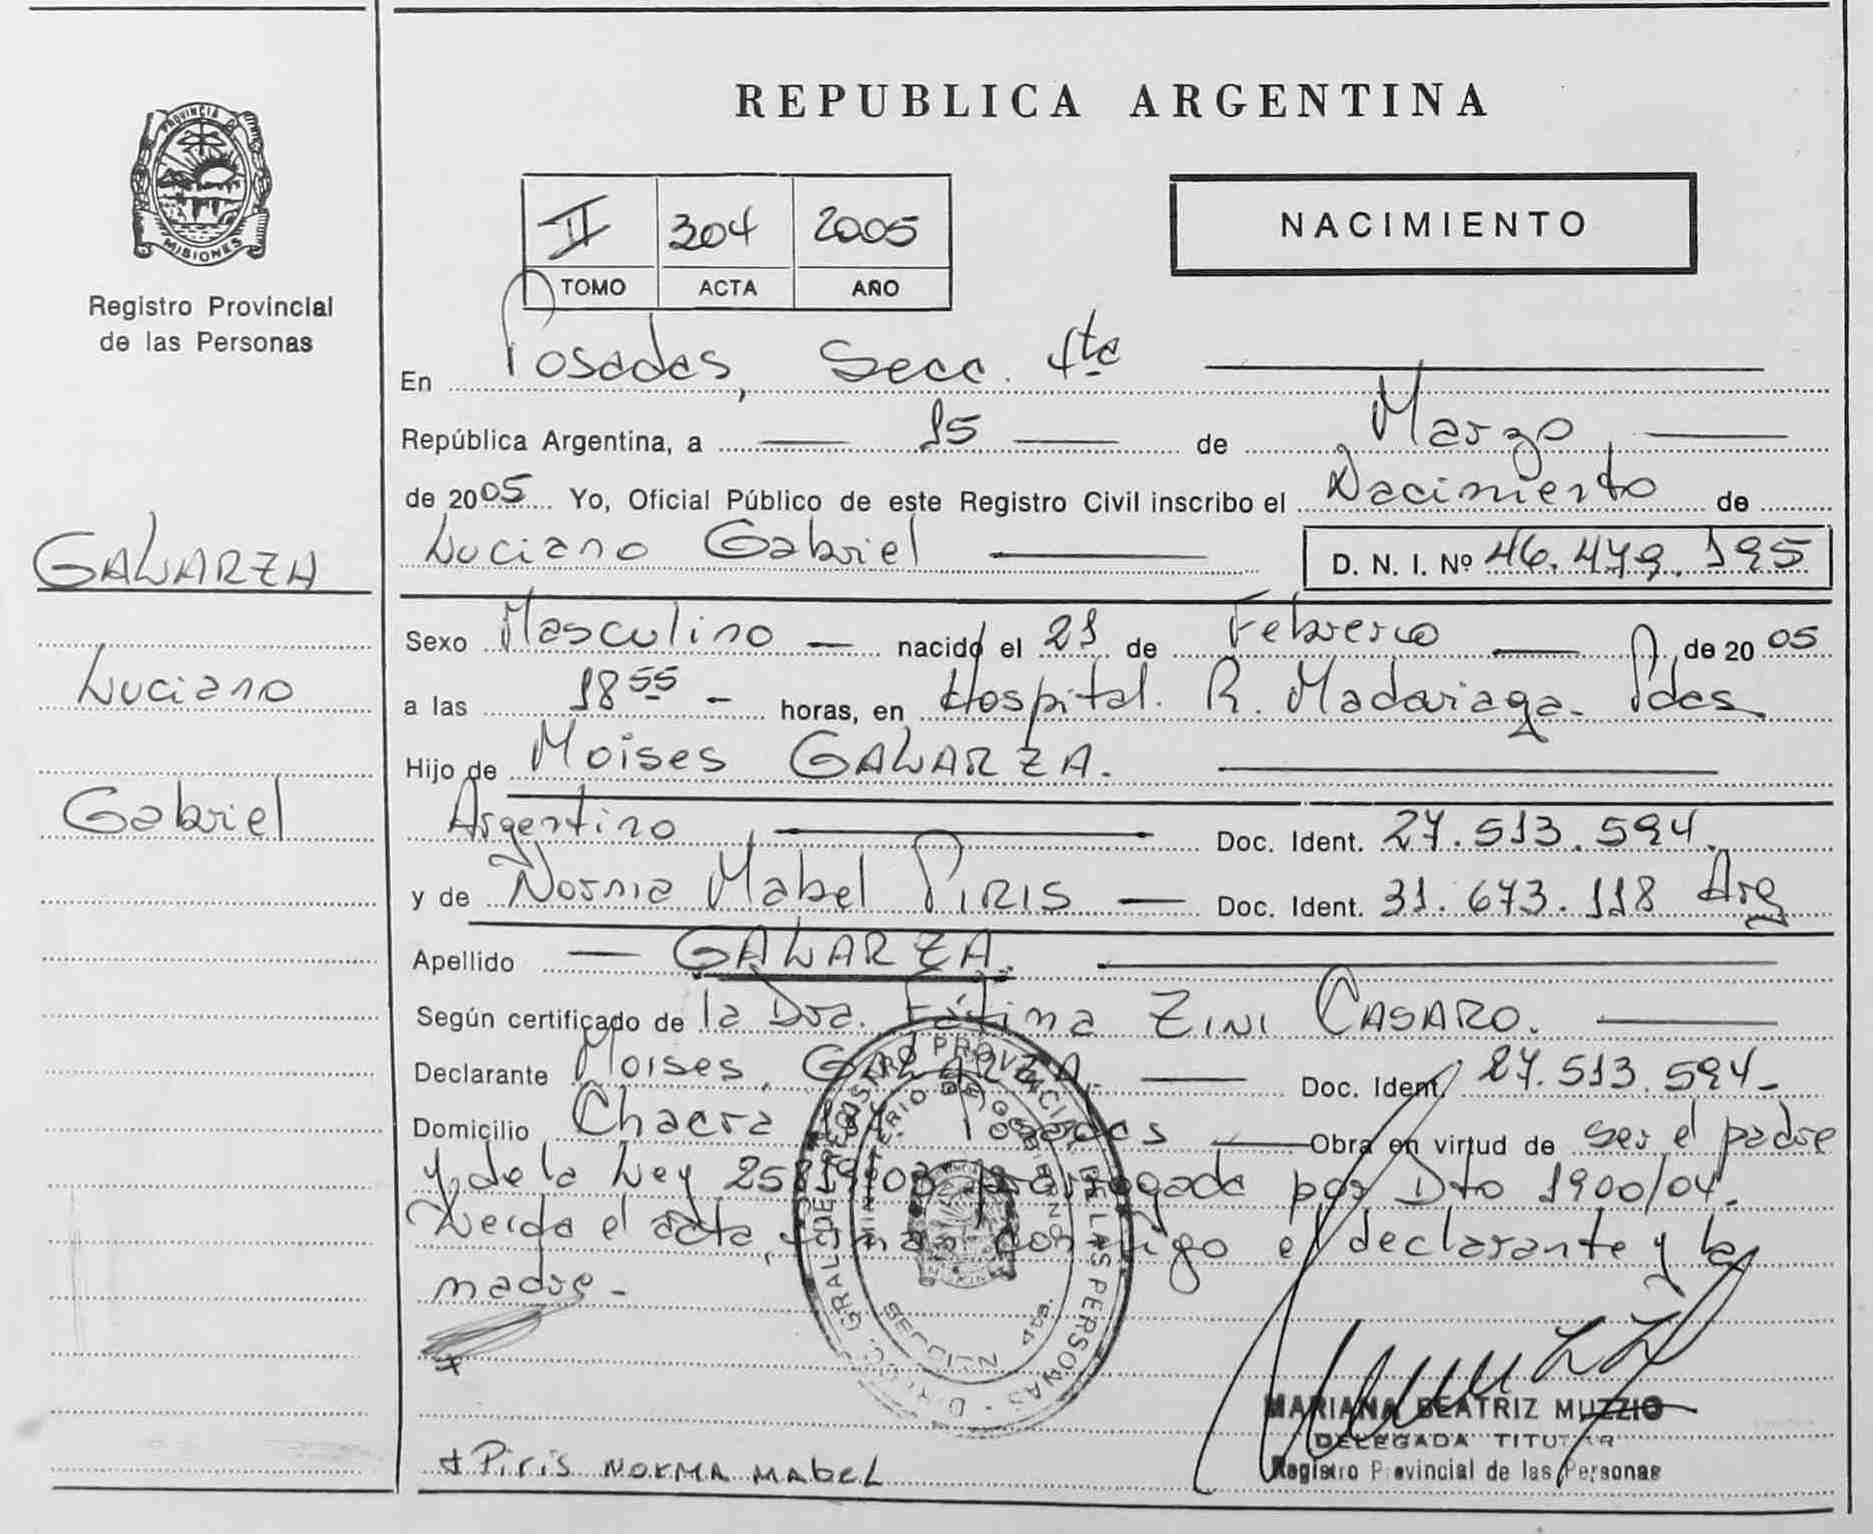 REPUBLICA ARGENTINA
PROVINCIA DE
MISIONES
Registro Provincial
de las Personas
II 304 2005
TOMO ACTA AÑO
NACIMIENTO
En Posadas, Secc. 4ta
República Argentina, a 15 de Marzo
de 2005 Yo, Oficial Público de este Registro Civil inscribo el Nacimiento de
Luciano Gabriel D. N. I. Nº 46.479.195
GALLARZA
Luciano
Gabriel
Sexo Masculino nacido el 21 de Febrero de 2005
a las 18 55 - horas, en Hospital. R. Madariaga- Pdas
Hijo de Moises GALLARZA.
Argentino Doc. Ident. 27.513.594.
y de Norma Mabel PIRIS Doc. Ident. 31.673.118 Arg
Apellido GALLARZA.
Según certificado de la Dra. Fátima ZINI CASARO.
Declarante Moises GALLARZA Doc. Ident. 27.513.594-
Domicilio Chacra Posadas Obra en virtud de ser el padre
y de la Ley 25819/03 prorrogada por Dto 1900/04.
Leida el acta, firman conmigo el declarante y la
madre-
REGISTRO PROVINCIAL DE LAS PERSONAS
SECCION 4ta.
MARIANA BEATRIZ MUZZIO
DELEGADA TITULAR
Registro Provincial de las Personas
+ Piris NORMA MABEL